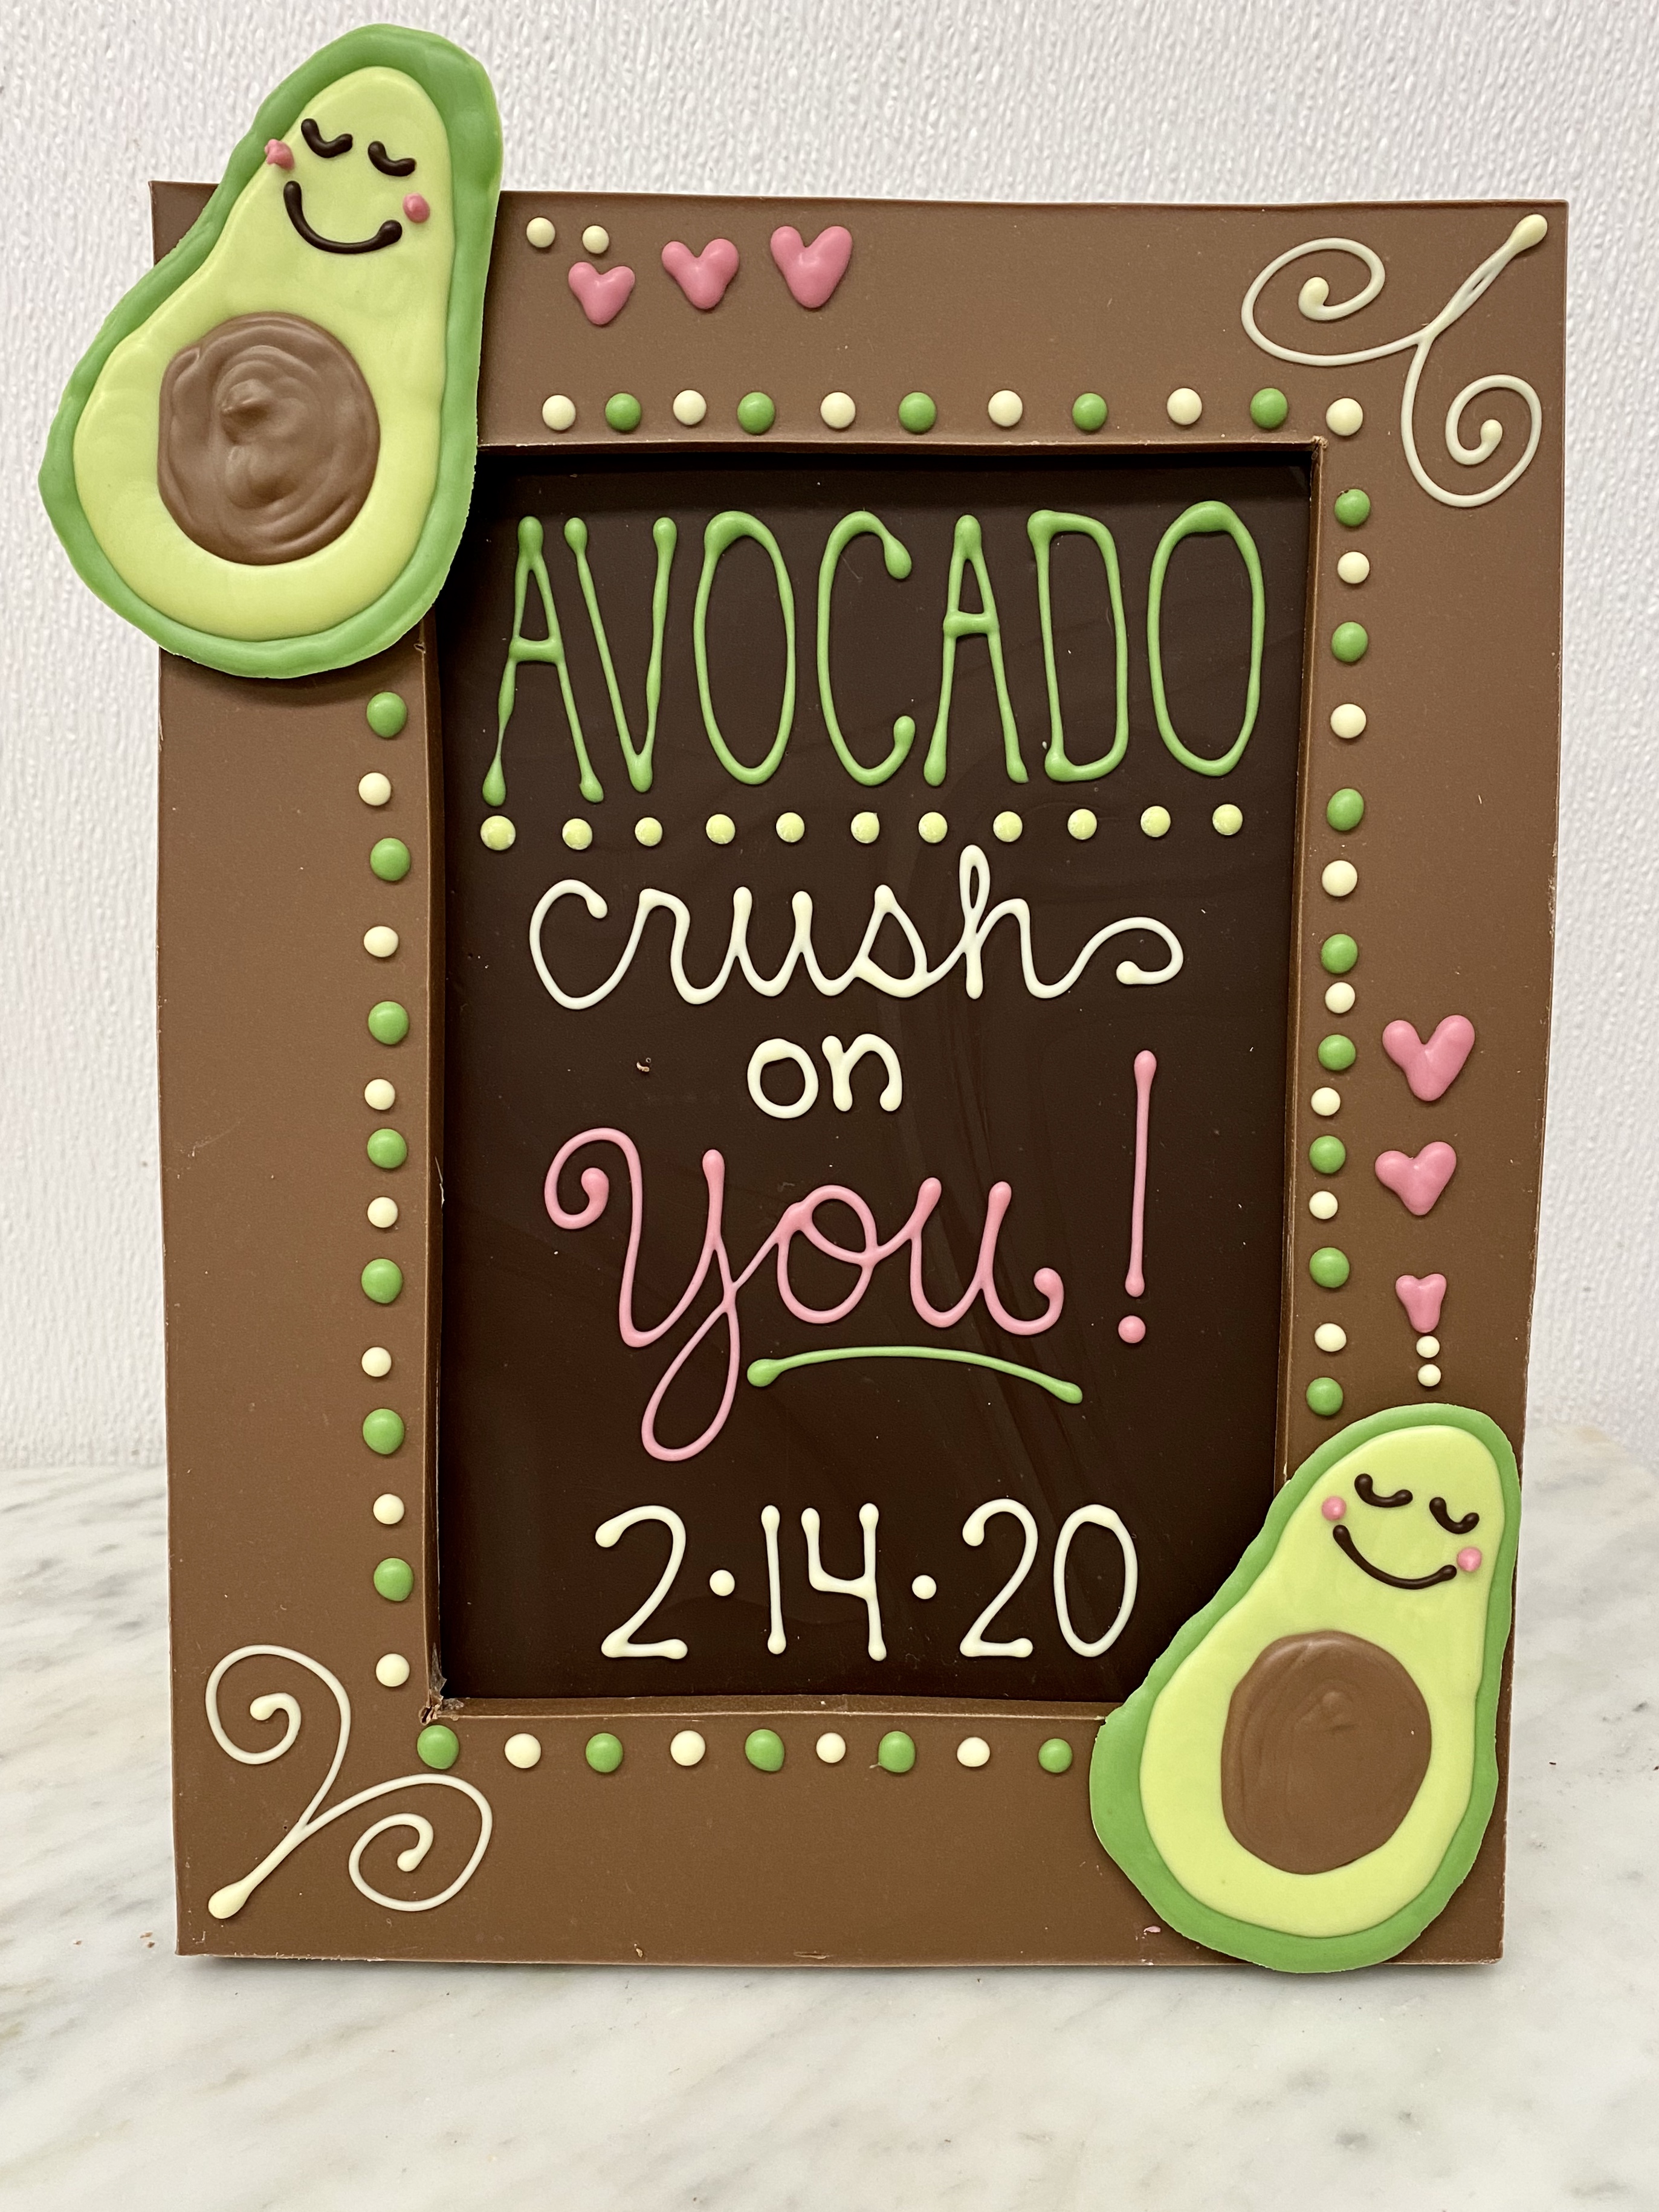 AVOCADO
crush
on
you!
2•14•20